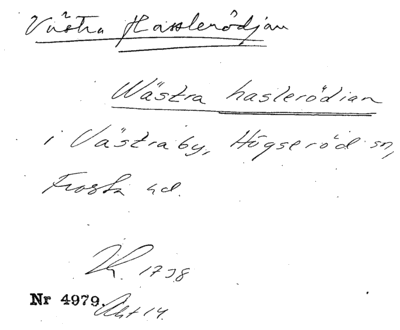 Västra Hasslerödjan
Wästra haslerödian
i Västraby, Högseröd sn,
Frosta hd.
LK. 1738
Nr 4979. Akt 14.